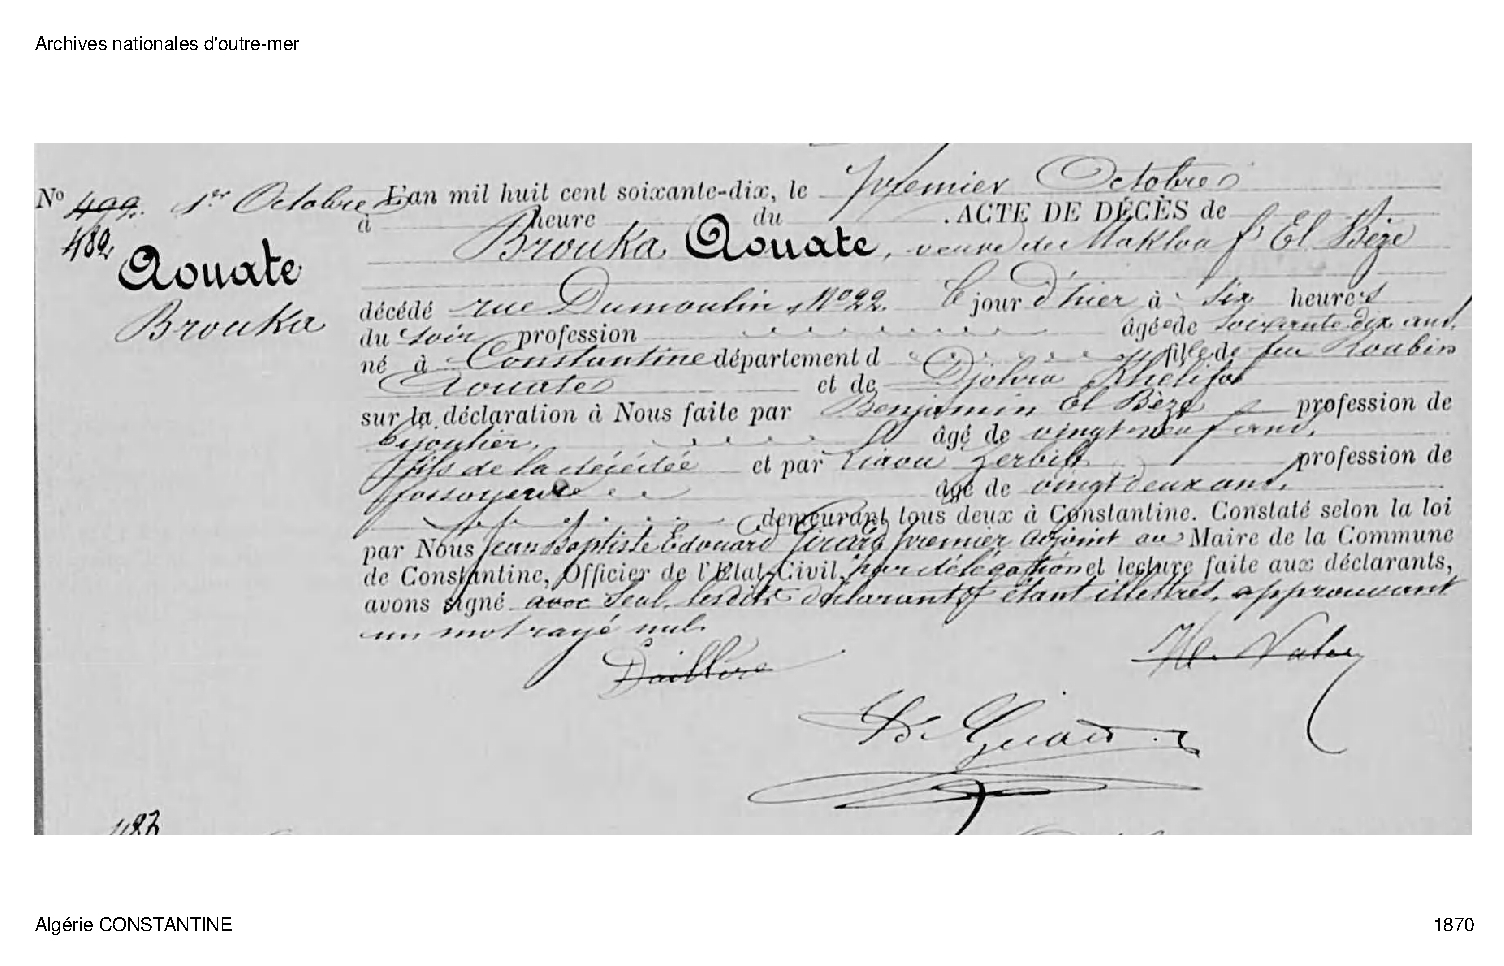 Archives nationales d'outre-mer
No 499. 1er Octobre L'an mil huit cent soixante-dix, le Premier Octobre
482 à heure du ACTE DE DÉCÈS de
Aouate Brouka Aouate, veuve de Makhlouf El Bèze
Brouka décédé rue Dumoulin No 22 le jour d'hier à six heures
du soir profession âgée de soixante dix ans.
né à Constantine département d fille de feu Roubin
Aouate et de Khelifa
sur la déclaration à Nous faite par Benjamin El Bèze profession de
bijoutier. âgé de vingt neuf ans.
fils de la décédée et par Zerbib profession de
fossoyeur âgé de vingt deux ans.
demeurant tous deux à Constantine. Constaté selon la loi
par Nous Jean Baptiste Edouard premier adjoint au Maire de la Commune
de Constantine, Officier de l'Etat-Civil, par délégation et lecture faite aux déclarants,
avons signé avec seul, lesdits déclarants étant illettrés, approuvant
un mot rayé nul.
487
Algérie CONSTANTINE 1870